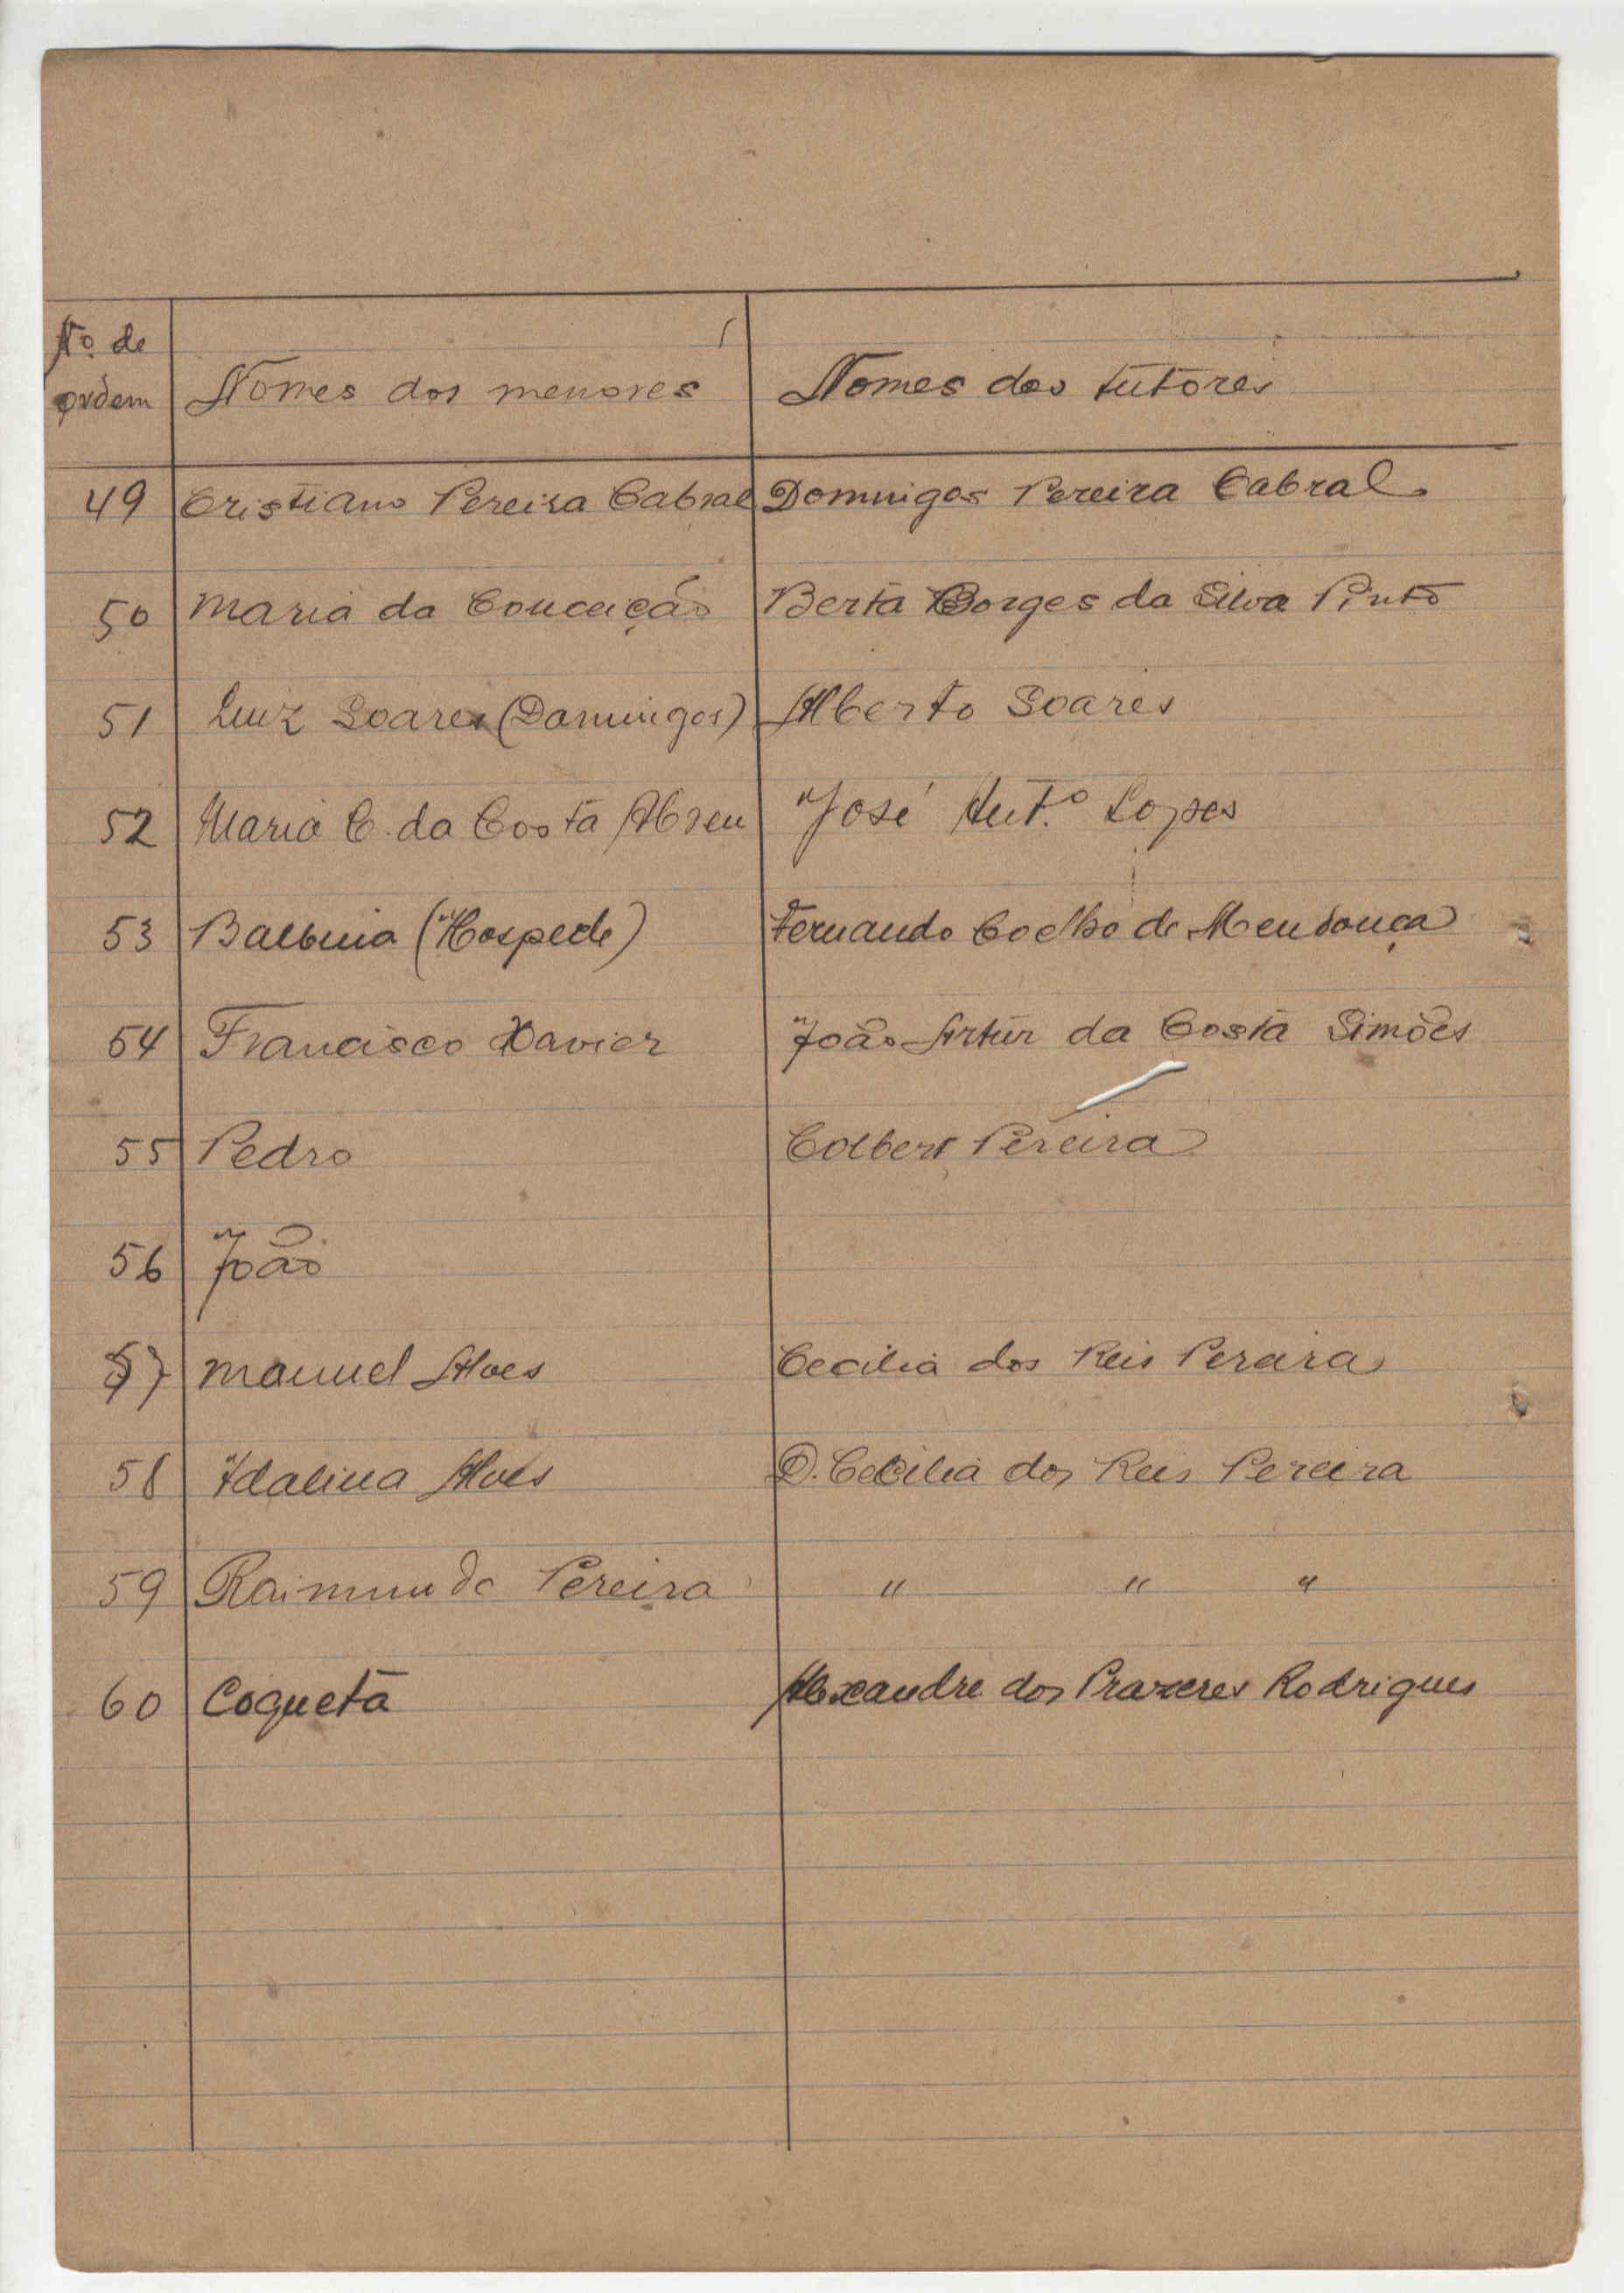 Nº de
ordem Nomes dos menores Nomes dos tutores
49 Cristiano Pereira Cabral Domingos Pereira Cabral
50 Maria da Conceição Berta Borges da Silva Pinto
51 Luiz Soares (Domingos) Alberto Soares
52 Maria C. da Costa Abreu José Antº Lopes
53 Balbina (Hospede) Fernando Coelho de Mendonça
54 Francisco Xavier João Artur da Costa Simões
55 Pedro Colbert Pereira
56 João
57 Manuel Alves Cecilia dos Reis Pereira
58 Idalina Alves D. Cecilia dos Reis Pereira
59 Raimundo Pereira " " "
60 Coqueta Alexandre dos Prazeres Rodrigues